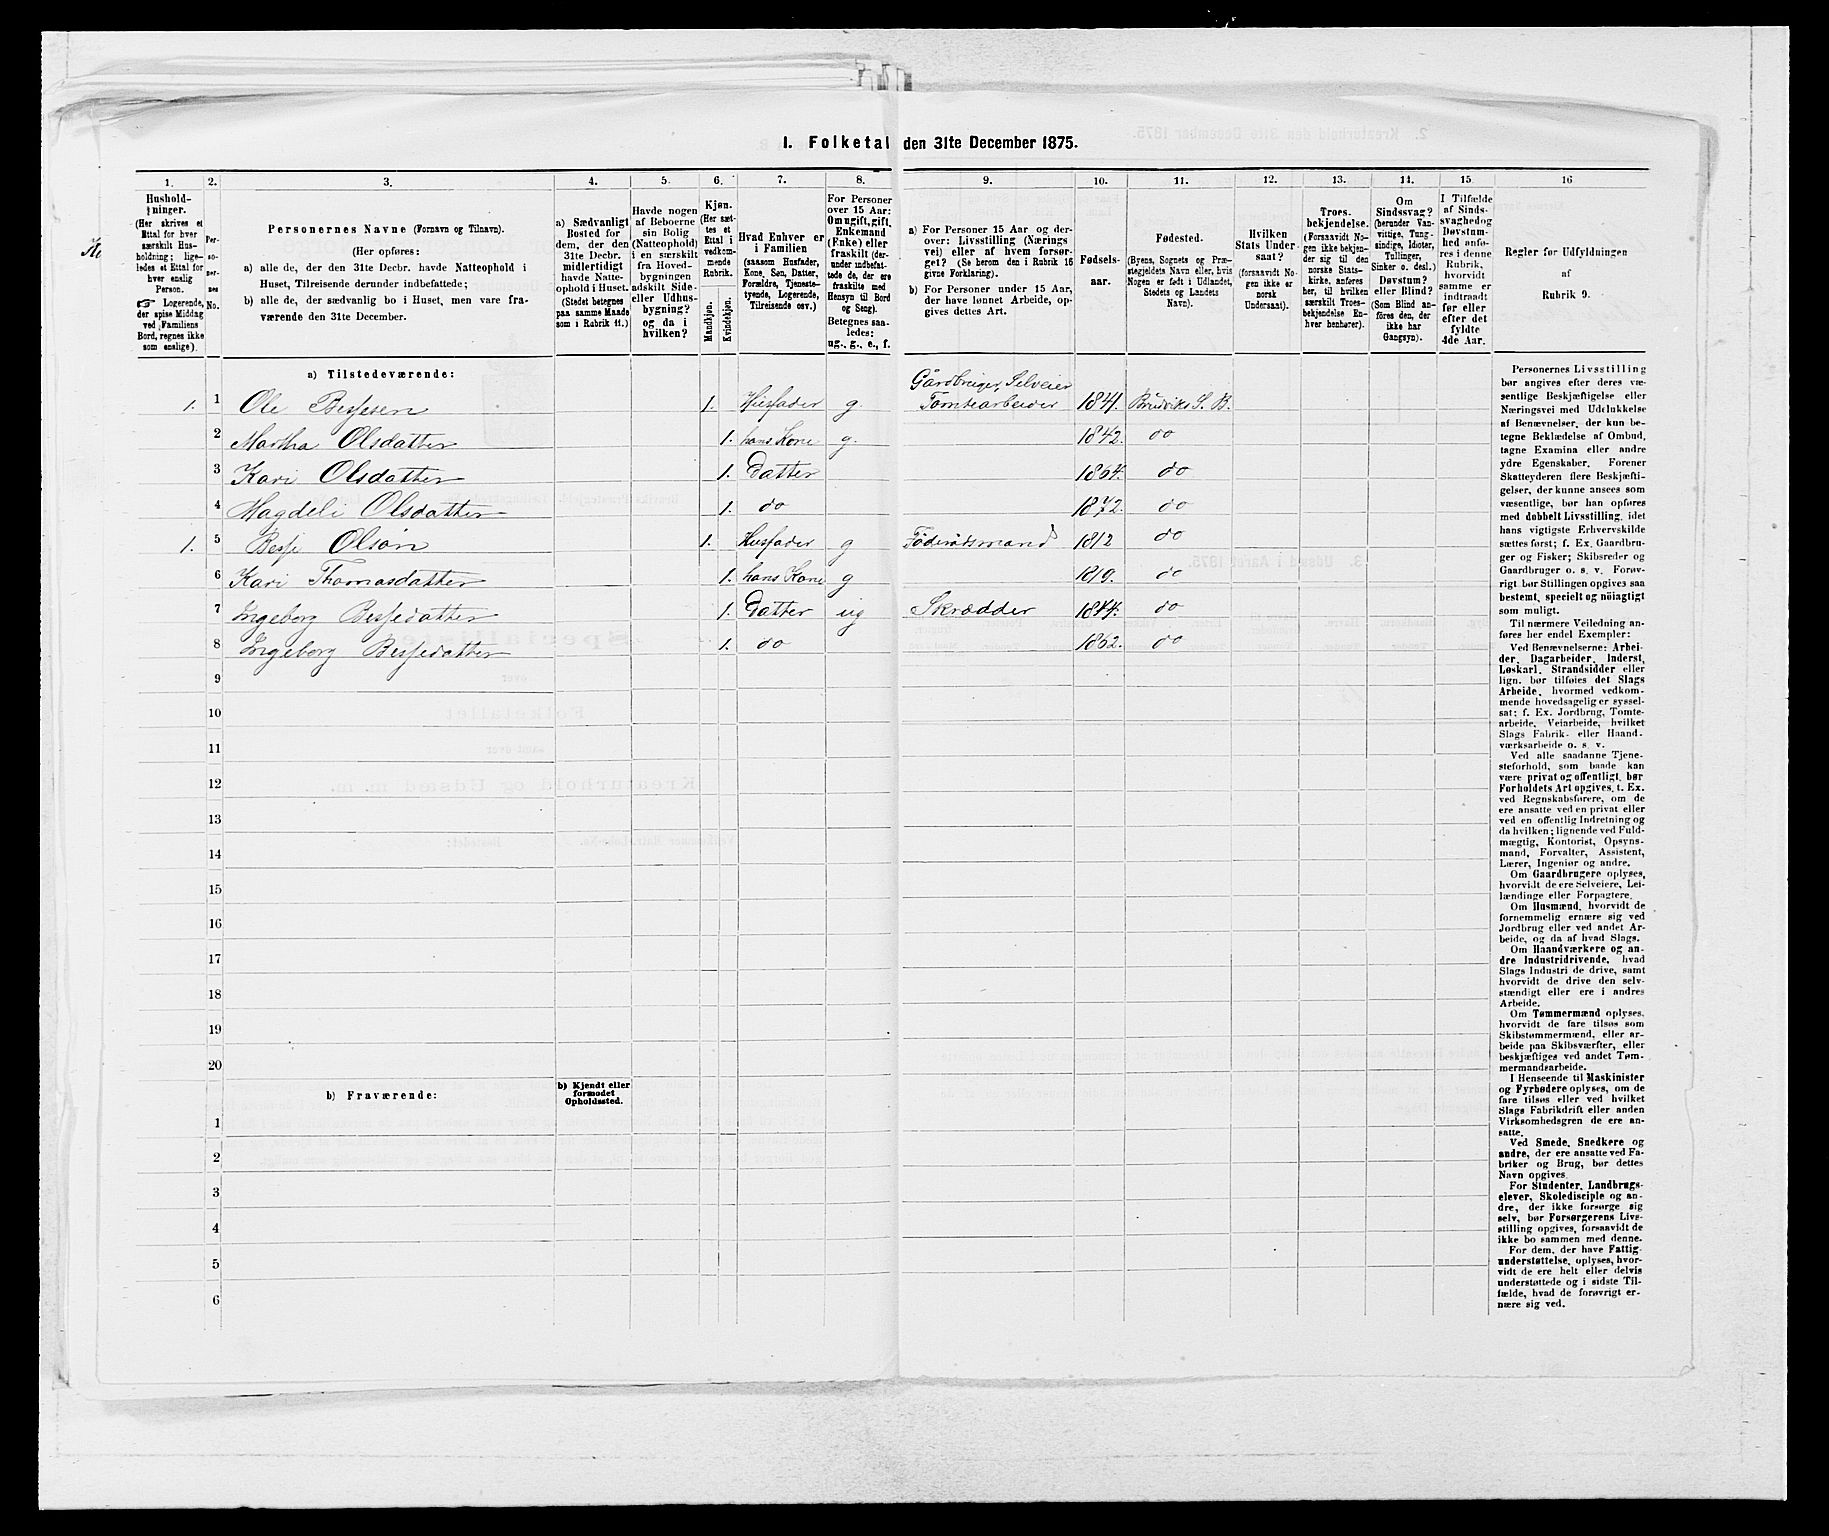 I. Folketal den 31te December 1875.
1. 2. 3. 4. 5. 6. 7. 8. 9. 10. 11. 12. 13. 14. 15. 16
Hushold-
ninger.
(Her skrives et
Ettal for hver
særskilt Hus-
holdning; lige-
ledes et Ettal for
hver enslig
Person.
☞ Logerende,
der spise Middag
ved Familiens
Bord, regnes ikke
som enslige).
Per-
so-
per-
nes
No.
Personernes Navne (Fornavn og Tilnavn).
(Her opføres:
a) alle de, der den 31te Decbr. havde Natteophold i
Huset, Tilreisende derunder indbefattede;
b) alle de, der sædvanlig bo i Huset, men vare fra-
værende den 31te December.
a) Sædvanligt
Bosted for
dem, der den
31te Decbr.
midlertidigt
havde Natte-
ophold i Huset.
(Stedet betegnes
paa samme Maade
som i Rubrik 11.)
Havde nogen
af Beboerne
sin Bolig
(Natteophold)
i en særskilt
fra Hoved-
bygningen
adskilt Side-
eller Udhus-
bygning?
og da i
hvilken?
Kjøn.
(Her sæt-
tes et
Ettal i
vedkom-
mende
Rubrik.
Mandkjøn.
Kvindekjøn.
Hvad Enhver er
i Familien
(saasom Husfader,
Kone, Søn, Datter,
Forældre, Tjeneste-
tyende, Logerende,
Tilreisende osv.)
For Personer
over 15 Aar:
Om ugift, gift,
Enkemand
(Enke) eller
fraskilt (der-
under indbefat-
tede de, der ere
fraskilte med
Hensyn til Bord
og Seng).
Betegnes saa-
ledes:
ug., g., e., f.
a) For Personer 15 Aar og der-
over: Livsstilling (Nærings
vei) eller af hvem forsør-
get? (Se herom den i Rubrik 16
givne Forklaring).
b) For Personer under 15 Aar,
der have lønnet Arbeide, op-
gives dettes Art.
Fødsels-
aar.
Fødested.
(Byens, Sognets og Præ-
stegjeldets Navn eller, hvis
Nogen er født i Udlandet,
Stedets og Landets
Navn).
Hvilken
Stats Under-
saat?
(forsaavidt No-
gen ikke er
norsk
Undersaat).
Troes-
bekjendelse.
(Forsaavidt No-
gen ikke bekjen-
der sig til den
norske Stats-
kirke, anføres
her, til hvilken
særskilt Troes-
bekjendelse En-
hver henhører).
Om
Sindssvag?
(herunder Van-
vittige, Tung-
sindige, Idioter,
Tullinger,
Sinker o. desl.)
Døvstum?
eller Blind?
(Som Blind an-
føres den, der
ikke har
Gangsyn).
I Tilfælde
af Sinds-
svaghed og
Døvstum-
hed anfø-
res i denne
Rubrik,
hvorvidt
samme er
indtraadt
før eller
efter det
fyldte
4de Aar.
Regler for Udfyldningen
af
Rubrik 9.
a) Tilstedeværende:
Gårdbruger, Selveier
1. 1 Ole Bessesen 1. Husfader g. Tomtearbeider 1841. Brudviks S. B.
2 Martha Olsdatter 1. hans Kone g. 1842. do
3 Kari Olsdatter 1. Datter 1864. do
4 Magdeli Olsdatter 1. do 1872. do
1. 5 Besse Olson 1. Husfader g Föderådsmand 1812 do
6 Kari Thomasdatter 1. hans Kone g 1819. do
7 Ingeborg Bessedatter 1. Datter ug Skrædder 1844. do
8 Ingeborg Bessedatter 1. do 1862. do
9
10
11
12
13
14
15
16
17
18
19
20
b) Fraværende:
b) Kjendt eller
formodet
Opholdssted.
1
2
3
4
5
6
Personernes Livsstilling
bør angives efter deres væ-
sentlige Beskjæftigelse eller
Næringsvei med Udelukkelse
af Benævnelser, der kun be-
tegne Beklædelse af Ombud,
tagne Examina eller andre
ydre Egenskaber. Forener
Skatteyderen flere Beskjæfti-
gelser, der kunne ansees som
væsentlige, bør han opføres
med dobbelt Livsstilling, idet
hans vigtigste Erhvervskilde
sættes først; f. Ex. Gaardbru-
ger og Fisker; Skibsreder og
Gaardbruger o. s. v. Forøv-
rigt bør Stillingen opgives saa
bestemt, specielt og nøiagtigt
som muligt.
Til nærmere Veiledning an-
føres her endel Exempler:
Ved Benævnelserne: Arbei-
der, Dagarbeider, Inderst,
Løskarl, Strandsidder eller
lign. bør tilføies det Slags
Arbeide, hvormed vedkom-
mende hovedsagelig er syssel-
sat; f. Ex. Jordbrug, Tomte-
arbeide, Veiarbeide, hvilket
Slags Fabrik- eller Haand-
værksarbeide o. s. v.
Ved alle saadanne Tjene-
steforhold, som baade kan
være privat og offentligt, bør
Forholdets Art opgives, t. Ex.
ved Regnskabsførere, om de
ere ansatte ved en privat eller
ved en offentlig Indretning og
da hvilken; lignende ved Fuld-
mægtig, Kontorist, Opsyns-
mand, Forvalter, Assistent,
Lærer, Ingeniør og andre.
Om Gaardbrugere oplyses,
hvorvidt de ere Selveiere, Lei-
lændinge eller Forpagtere.
Om Husmænd, hvorvidt de
fornemmelig ernære sig ved
Jordbrug eller ved andet Ar-
beide, og da af hvad Slags.
Om Haandværkere og an-
dre Industridrivende, hvad
Slags Industri de drive, samt
hvorvidt de drive den selv-
stændigt eller ere i andres
Arbeide.
Om Tømmermænd oplyses,
hvorvidt de fare tilsøs som
Skibstømmermænd, eller ar-
beide paa Skibsværfter, eller
beskjæftiges ved andet Tøm-
mermandsarbeide.
I Henseende til Maskinister
og Fyrbødere oplyses, om de
fare tilsøs eller ved hvilket
Slags Fabrikdrift eller anden
Virksomhedsgren de ere an-
satte.
Ved Smede, Snedkere og
andre, der ere ansatte ved Fa-
briker og Brug, bør dettes
Navn opgives
For Studenter, Landbrugs-
elever, Skoledisciple og an-
dre, der ikke forsørge sig
selv, bør Forsørgerens Livs-
stilling opgives, forsaavidt de
ikke bo sammen med denne.
For dem, der have Fattig-
understøttelse, oplyses, hvor-
vidt de ere helt eller delvis
understøttede og i sidste Til-
fælde, hvad de forøvrigt er-
nære sig ved.